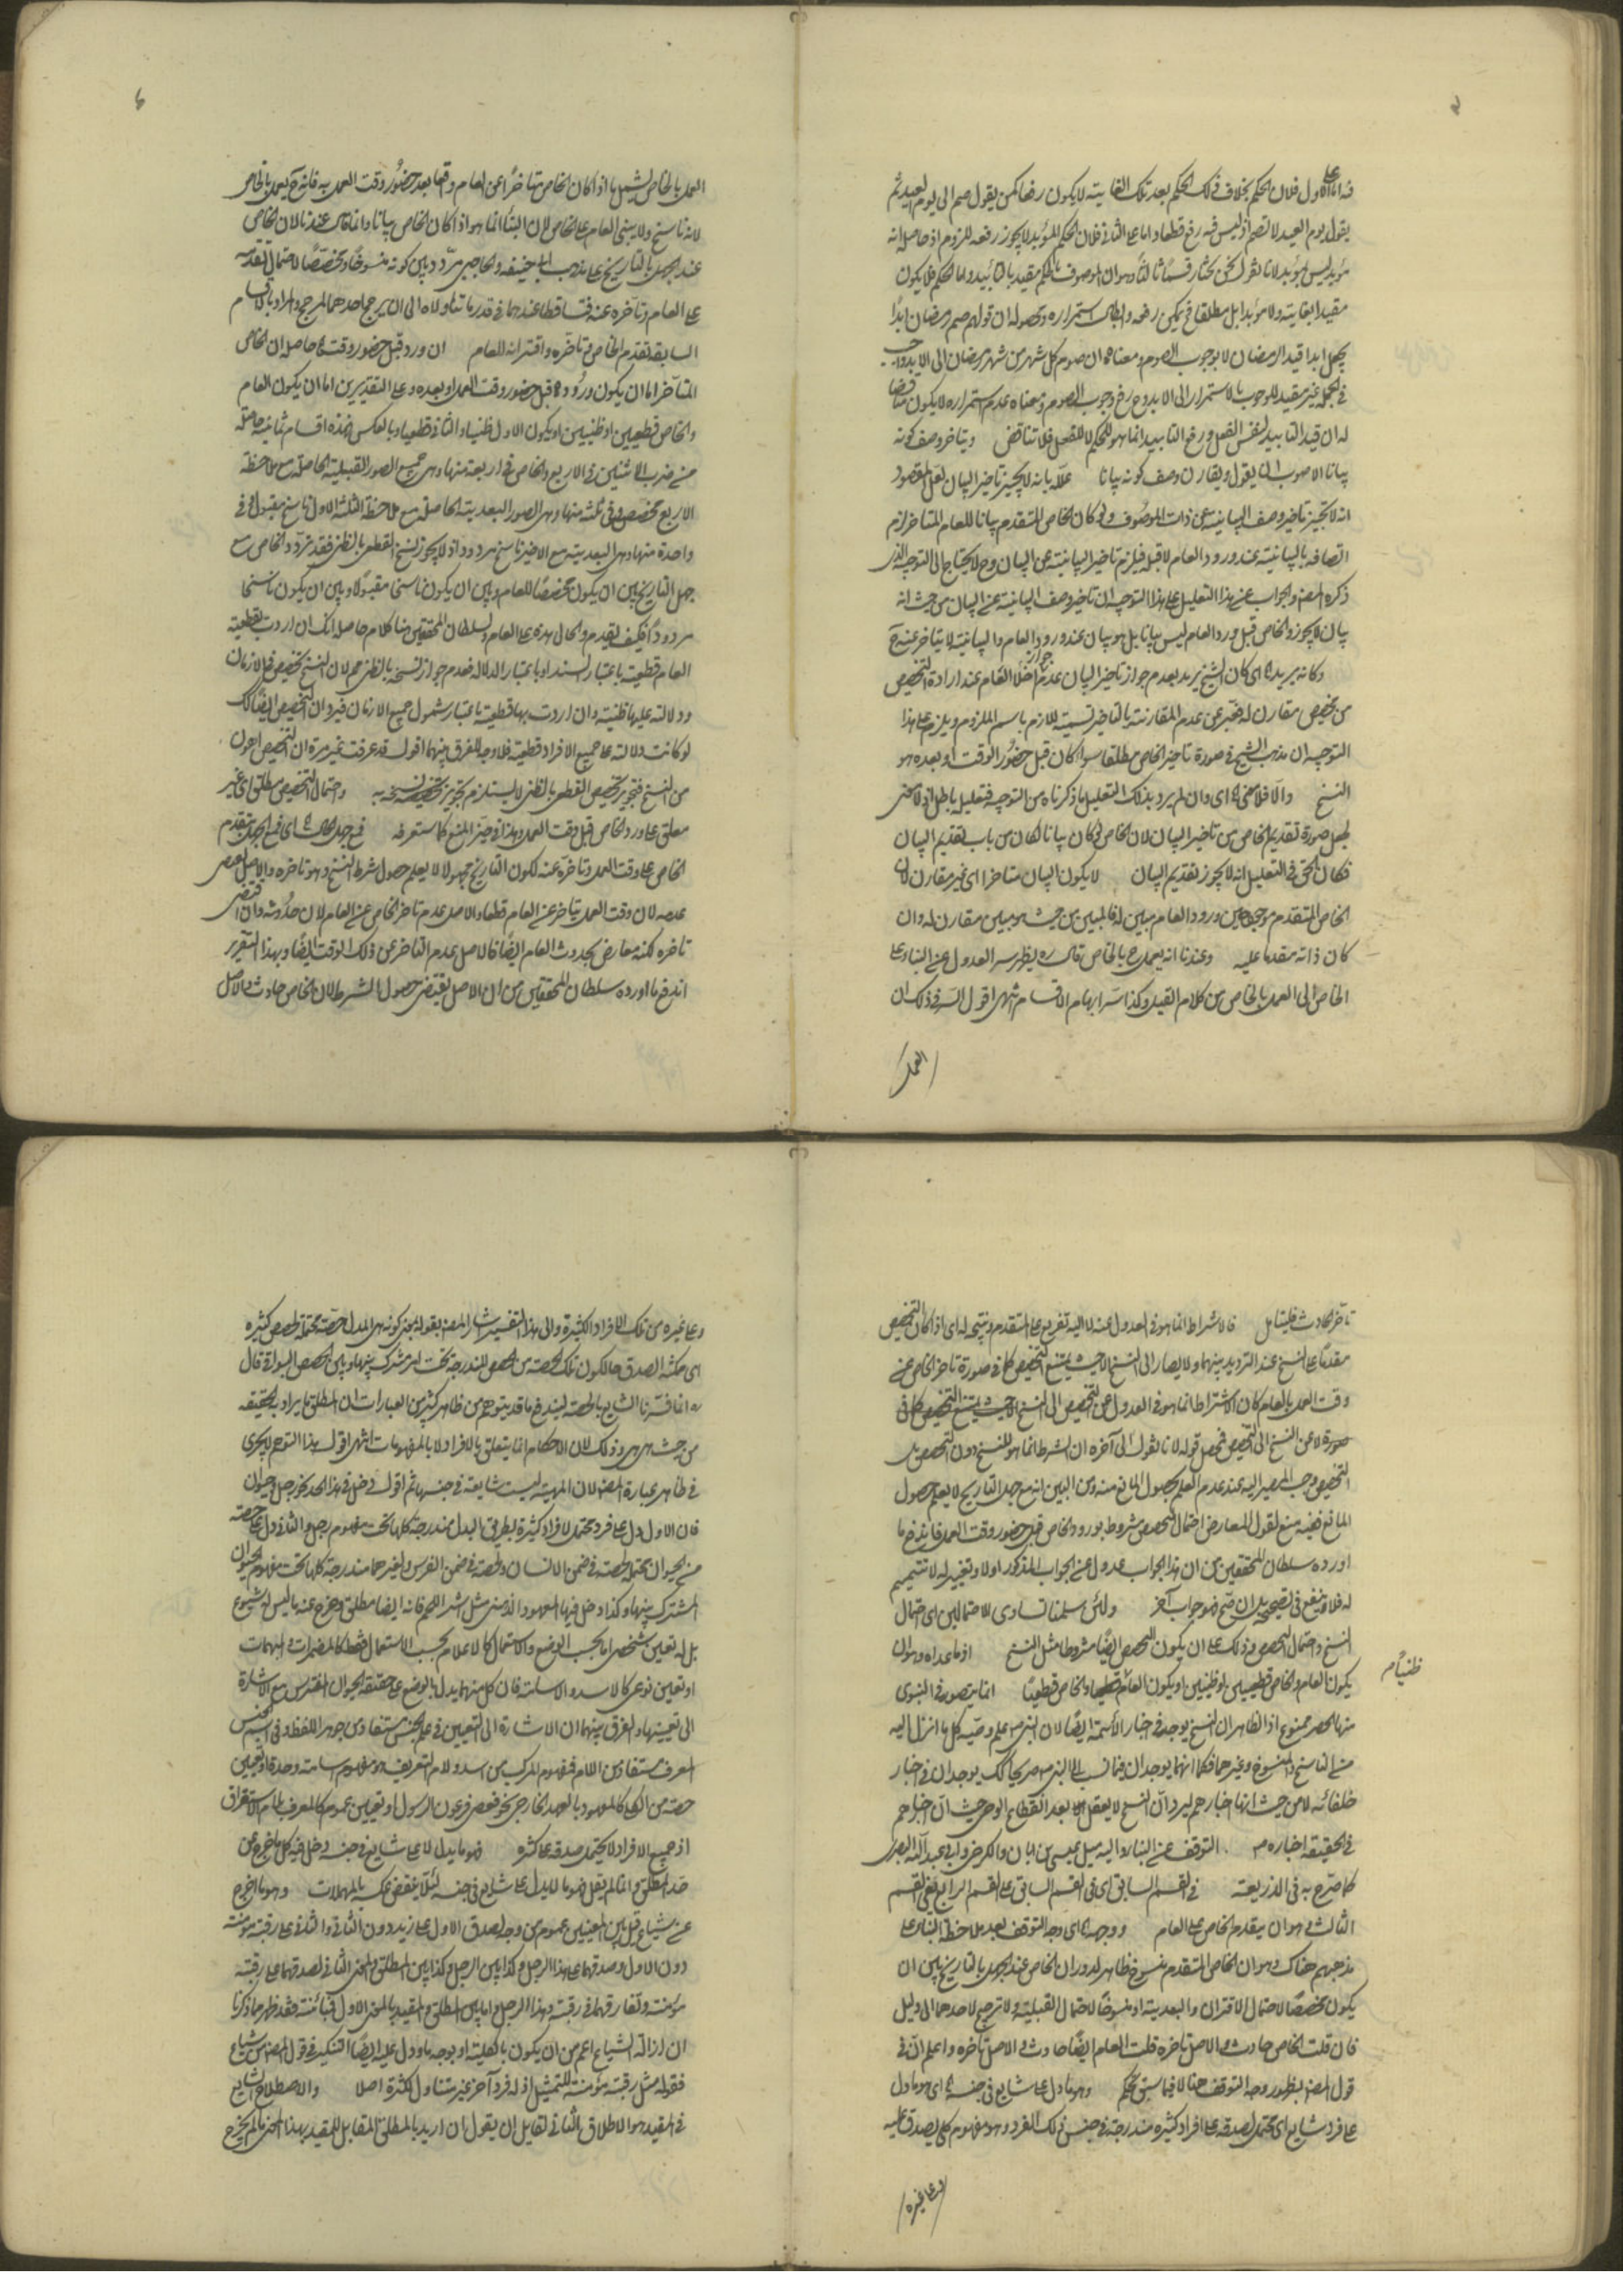 الاول فلان الحكم بخلاف ذلك الحكم بعد تلك الغاية لا يكون رفعا كمن يقول صم الى يوم العيد ثم
يقول يوم العيد لا تصم اذ ليس فيه رفع قطعا واما على الثانى فلان الحكم المؤبد لا يجوز رفعه للزوم اذ حاصله انه
مؤبد ليس بمؤبد لانا نقول نحن نختار قسما ثالثا وهو ان الموصوف بالحكم مقيد بالتأبيد واما الحكم فلا يكون
مقيدا بغاية ولا مؤبدا بل مطلقا فيمكن رفعه وابطال استمراره ومحصوله ان قولهم صم رمضان ابدا
يجعل ابدا قيد الرمضان لا لوجوب الصوم ومعناه ان صوم كل شهر من شهر رمضان الى الابد واجب
فى الجملة غير مقيد للوجوب بالاستمرار الى الابد وح رفع وجوب الصوم ومعناه عدم استمراره لا يكون مناقضا
له ان قيد التأبيد لنفس الفعل ورفع التأبيد انما هو للحكم لا للفعل فلا تناقض ويتأخر وصف كونه
بيانا الاصوب ان يقول ويقارن وصف كونه بيانا علله بانه لا يجيز تأخير البيان لعل المقصود
انه لا يجيز تأخير وصف البيانية عن ذات الموصوف ولو كان الخاص المتقدم بيانا للعام المتأخر لزم
اتصافه بالبيانية عند ورود العام لا قبله فيلزم تأخير البيانية عن البيان وح لا يحتاج الى التوجيه الذى
ذكره المصنف والجواب عن هذا التعليل على هذا التوجيه ان تأخير وصف البيانية عن البيان من حيث انه
بيان لا يجوز والخاص قبل ورود العام ليس بيانا بل هو بيان عند ورود العام والبيانية لا يتأخر عنه ح
وكانه يريد اى كان الشيخ يريد بعدم جواز تأخير البيان عدم جواز اخلاء العام عند ارادة التخصيص
من مخصص مقارن له فعبر عن عدم المقارنة بالتأخير تسمية للازم باسم الملزوم ويلزم على هذا
التوجيه ان مذهب الشيخ فى صورة تأخير الخاص مطلقا سواء كان قبل حضور الوقت او بعده هو
النسخ والا فلا معنى له اى وان لم يرد بذلك التعليل ما ذكرناه من التوجيه فتعليله باطل اذ لا معنى
لجعل صورة تقديم الخاص من تأخير البيان لان الخاص لو كان بيانا لكان من باب تقديم البيان
فكان الحق فى التعليل انه لا يجوز تقديم البيان لا يكون البيان متأخرا اى غير مقارن لان
الخاص المتقدم موجود حين ورود العام مبين له فالمبين من حيث هو مبين مقارن له وان
كان ذاته متقدما عليه وعندنا انه يعمل ح بالخاص يظهر سر العدول عن البناء على
الخاص الى العمل بالخاص من كلام القيل وكذا سر ابهام الاقسام انتهى اقول السر فى ذلك ان
العمل
العمل بالخاص يشمل ما اذا كان الخاص متأخرا عن العام واقعا بعد حضور وقت العمل به فانه ح يعمل بالخاص
لانه ناسخ ولا يبنى العام على الخاص لان البناء انما هو اذا كان الخاص بيانا وانما قال عندنا لان الخاص
عند الجهل بالتاريخ على مذهب ابى حنيفة والحاجبى مردد بين كونه منسوخا ومخصصا لاحتمال تقدمه
على العام وتأخره عنه فتساقطا عندهما فى قدر ما تناولاه الى ان يرجح احدهما لمرجح والمراد بالاقسام
السابقة تقدم الخاص وتأخره واقترانه للعام ان ورد قبل حضور وقت حاصله ان الخاص
المتأخر اما ان يكون وروده قبل حضور وقت العمل او بعده وعلى التقديرين اما ان يكون العام
والخاص قطعيين او ظنيين او يكون الاول ظنيا والثانى قطعيا وبالعكس فهذه اقسام ثمانية حاصلة
من ضرب الاثنين فى الاربع والخاص فى اربعة منها وهى جميع الصور القبلية الحاصلة مع ملاحظة
الاربع مخصص وفى ثلثة منها وهى الصور البعدية الحاصلة مع ملاحظة الثلثة الاول ناسخ مقبول وفى
واحدة منها وهى البعدية مع الاخير ناسخ مردود اذ لا يجوز نسخ القطعى بالظنى فقد تردد الخاص مع
جهل التاريخ بين ان يكون مخصصا للعام وبين ان يكون ناسخا مقبولا وبين ان يكون ناسخا
مردودا فكيف يقدم والحال هذه على العام ولسلطان المحققين هنا كلام حاصله انك ان اردت بقطعية
العام قطعيته باعتبار السند او باعتبار الدلالة فعدم جواز نسخه بالظنى مم لان النسخ تخصيص فى الازمان
ودلالته عليها ظنية وان اردت بها قطعيته باعتبار شمول جميع الازمان فيرد ان التخصيص ايضا كك
لو كانت دلالته على جميع الافراد قطعية فلا وجه للفرق بينهما اقول قد عرفت غير مرة ان التخصيص اهون
من النسخ فتجويز تخصيص القطعى بالظنى لا يستلزم تجويز نسخه به واحتمال التخصيص مطلق اى غير
معلق على ورود الخاص قبل وقت العمل وهذا فى حيز المنع كما ستعرفه فمع جهل الحال اى فمع الجهل بتقدم
الخاص على وقت العمل وتأخره عنه لكون التاريخ مجهولا لا يعلم حصول شرط النسخ وهو تأخره والاصل يقتضى
عدمه لان وقت العمل يتأخر عن العام قطعا والاصل عدم تأخر الخاص عن العام لان حدوثه وان اقتضى
تأخره لكنه معارض بحدوث العام ايضا فالاصل عدم التأخر عن ذلك الوقت ايضا وبهذا التقرير
اندفع ما اورده سلطان المحققين من ان الاصل يقتضى حصول الشرط لان الخاص حادث والاصل
تأخر الحادث فليتأمل فالاشتراط انما هو فى العدول عنه لا اليه تفريع على المتقدم ونتيجة له اى اذا كان التخصيص
مقدما على النسخ عند الترديد بينهما ولا يصار الى النسخ الا حيث يمتنع التخصيص كما فى صورة تأخر الخاص عن
وقت العمل بالعام كان الاشتراط انما هو فى العدول عن التخصيص الى النسخ
صورة لا عن النسخ الى التخصيص فمحصل قوله لانا نقول الى آخره ان الشرط انما هو للنسخ دون التخصيص بل
التخصيص يجب المصير اليه عند عدم العلم بحصول المانع منه ومن البين انه مع جهل التاريخ لا يعلم حصول
المانع ففيه منع لقول المعارض احتمال التخصيص مشروط بورود الخاص قبل حضور وقت العمل فاندفع ما
اورده سلطان المحققين من ان هذا الجواب عدول عن الجواب المذكور اولا وتغيير له لا تتميم
له فلا ينفع فى تصحيحه بل ان صح فهو جواب آخر ولئن سلمنا تساوى الاحتمالين اى احتمال
النسخ واحتمال التخصيص وذلك على ان يكون التخصيص ايضا مشروطا مثل النسخ اذ ما عداه وهو ان
يكون العام والخاص قطعيين او ظنيين او يكون العام ظنيا والخاص قطعيا انما يتصور فى النبوى
ظنيا م
منها الحصر ممنوع اذ الظاهر ان النسخ يوجد فى اخبار الأئمة ايضا لان النبى ص علم وصيه كل ما انزل اليه
من الناسخ والمنسوخ وغيرهما فكما انهما يوجدان فيما نسب الى النبى ص صريحا كك يوجدان فى اخبار
خلفائه لا من حيث انها اخبارهم ليرد ان النسخ لا يعقل بعد انقطاع الوحى بل من حيث ان اخبارهم
فى الحقيقة اخباره ص التوقف عن البناء واليه ميل عيسى بن ابان والكرخى وابى عبد الله البصرى
كما صرح به فى الذريعة فى القسم السابق اى فى القسم السابق على القسم الرابع يعنى القسم
الثالث وهو ان يتقدم الخاص على العام ووجهه اى وجه التوقف بعد ملاحظة البناء على
مذهبهم هناك وهو ان الخاص المتقدم منسوخ ظاهر لدوران الخاص عند الجهل بالتاريخ بين ان
يكون مخصصا لاحتمال الاقتران والبعدية او منسوخا لاحتمال القبلية ولا ترجيح لاحدهما الى دليل
فان قلت الخاص حادث والاصل تأخره قلت العام ايضا حادث والاصل تأخره واعلم ان فى
قول المصنف بظهور وجه التوقف هنا لا فيما سبق تحكم وهو ما دل على شايع فى جنسه اى هو ما دل
على فرد شايع اى محتمل لصدقه على افراد كثيرة مندرجة فى جنس ذلك الفرد وهو مفهوم كلى يصدق عليه
وعلى غيره
وعلى غيره من تلك الافراد الكثيرة والى هذا التفسير اشار المصنف بقوله بمعنى كونه اى المدلول حصة محتملة لحصص كثيرة
اى ممكنة الصدق هنا لكون تلك الحصة من الحصص المندرجة تحت امر مشترك بينها وبين الحصص البواقى قال
انما فسرنا الشايع بالحصة ليندفع ما قد يتوهم من ظاهر كثير من العبارات ان المطلق ما يراد به الحقيقة
من حيث هى هى وذلك لان الاحكام انما يتعلق بالافراد لا بالمفهومات انتهى اقول هذا التوهم لا يجرى
فى ظاهر عبارة المصنف لان الماهية ليست شايعة فى جنسها ثم اقول دخل فى هذا الحد نحو رجل وحيوان
فان الاول دل على فرد محتمل لافراد كثيرة بطريق البدل مندرجة كلها تحت مفهوم رجل والثانى دل على حصة
من الحيوان محتملة لحصة فى ضمن الانسان ولحصة فى ضمن الفرس ولغيرهما مندرجة كلها تحت مفهوم الحيوان
المشترك بينها وكذا دخل فيها المعهود الذهنى مثل اشتر اللحم فانه ايضا مطلق وخرج عنه ما ليس له شيوع
بل له تعين شخصى اما بحسب الوضع والاستعمال كالاعلام او بحسب الاستعمال فقط كالمضمرات والمبهمات
او تعين نوعى كالاسد والاسامة فان كل منهما يدل بالوضع على حقيقة الحيوان المفترس مع الاشارة
الى تعيينها والفرق بينهما ان الاشارة الى التعيين فى علم الجنس مستفاد من جوهر اللفظ وفى اسم الجنس
المعرف مستفاد من اللام فمفهوم المركب من اسد ولام التعريف هو مفهوم اسامة وحده او تعيين
حصة من الكلى كالمعهود بالعهد الخارجى نحو فعصى فرعون الرسول او تعيين عموم كالمعرف بلام الاستغراق
اذ جميع الافراد لا يحتمل صدقه على كثيرة فهو ما يدل لا على شايع فى جنسه دخل فيه كل ما خرج عن
حد المطلق وانما لم يقل هو ما لا يدل على شايع فى جنسه لئلا ينتقض عكسه بالمهملات وهو ما اخرج
عن شياع قيل بين المعنيين عموم من وجه لصدق الاول على زيد دون الثانى والثانى على رقبة مؤمنة
دون الاول وصدقهما على هذا الرجل وكذا بين الرجل وكذا بين المطلق والمعنى الثانى لصدقهما على رقبة
مؤمنة وتفارقهما فى رقبة وهذا الرجل واما بين المطلق والمقيد بالمعنى الاول فتباينة فقد ظهر مما ذكرنا
ان ازالة الشياع اعم من ان يكون بالكلية او بوجه ما ودل عليه ايضا التنكير فى قول المصنف من شياع
فقوله مثل رقبة مؤمنة للتمثيل اذ له فرد آخر غير متناول لكثرة اصلا والاصطلاح الشايع
فى المقيد هو الاطلاق الثانى لقايل ان يقول ان اريد بالمطلق المقابل للمقيد بهذا المعنى ما لم يخرج